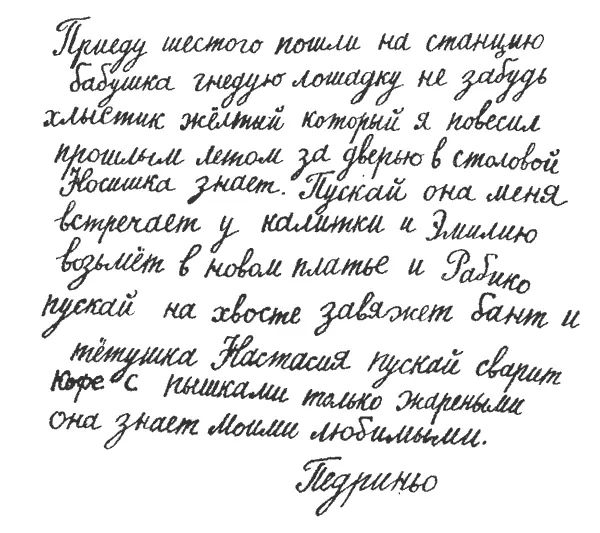 Приеду шестого пошли на станцию
бабушка гнедую лошадку не забудь
хлыстик жёлтый который я повесил
прошлым летом за дверью в столовой
Носишка знает. Пускай она меня
встречает у калитки и Эмилию
возьмёт в новом платье и Рабико
пускай на хвосте завяжет бант и
тётушка Настасия пускай сварит
кофе с пышками только жареными
она знает моими любимыми.
Педриньо